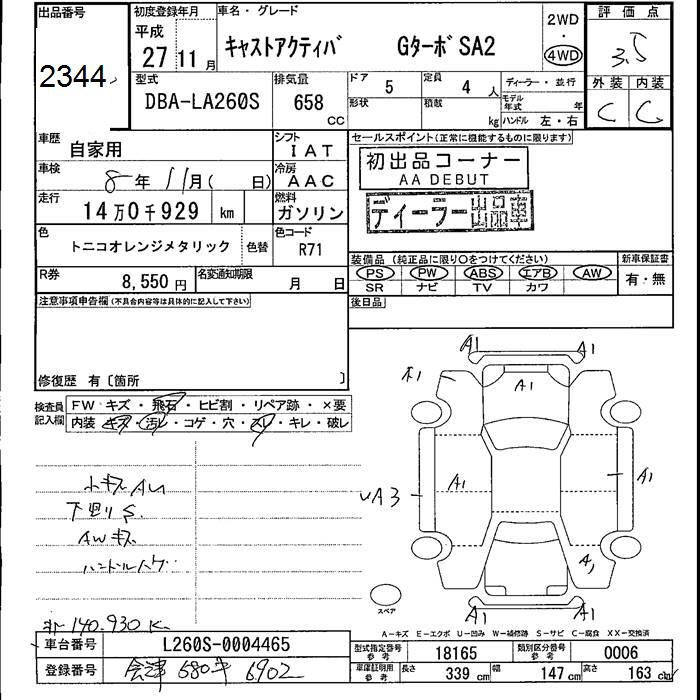 出品番号
2344
初度登録年月
平成
27 11 月
車名・グレード
キャストアクティバ Gターボ SA2
2WD
・
4WD
評価点
3.5
型式
DBA-LA260S
排気量
658
CC
ドア
5
定員
4 人
ディーラー・並行
形状
積載
kg
モデル年式
年
ハンドル 左・右
外装 内装
C C
車歴
自家用
シフト
IAT
セールスポイント(正常に機能するものに限ります)
初出品コーナー
AA DEBUT
ディーラー出品車
車検
8 年 11 月 ( 日)
冷房
AAC
走行
14万0千929 km
燃料
ガソリン
色
トニコオレンジメタリック
色替
色コード
R71
装備品 (純正品に限り○をつけてください)
新車保証書
PS PW ABS エアB AW
SR ナビ TV カワ
有・無
R券
8,550 円
名変通知期限
月 日
後日品
注意事項申告欄(不具合内容等は具体的に記入して下さい)
修復歴 有〔箇所 〕
検査員記入欄
FW キズ・飛石・ヒビ割・リペア跡・×要
内装 キズ・汚レ・コゲ・穴・スレ・キレ・破レ
小キズ AU
下回り S.
AWキズ
ハンドルハゲ
140.930 K
A1 A1
A1 A1
A1 A1
UA3
A1
A1 A1
スペア
A-キズ E-エクボ U-凹み W-補修跡 S-サビ C-腐食 XX-交換済
車台番号
LA260S-0004465
型式指定番号
参考
18165
類別区分番号
参考
0006
登録番号
会津 580 キ 6902
車庫証明用
参考
長さ
339 cm
幅
147 cm
高さ
163 cm